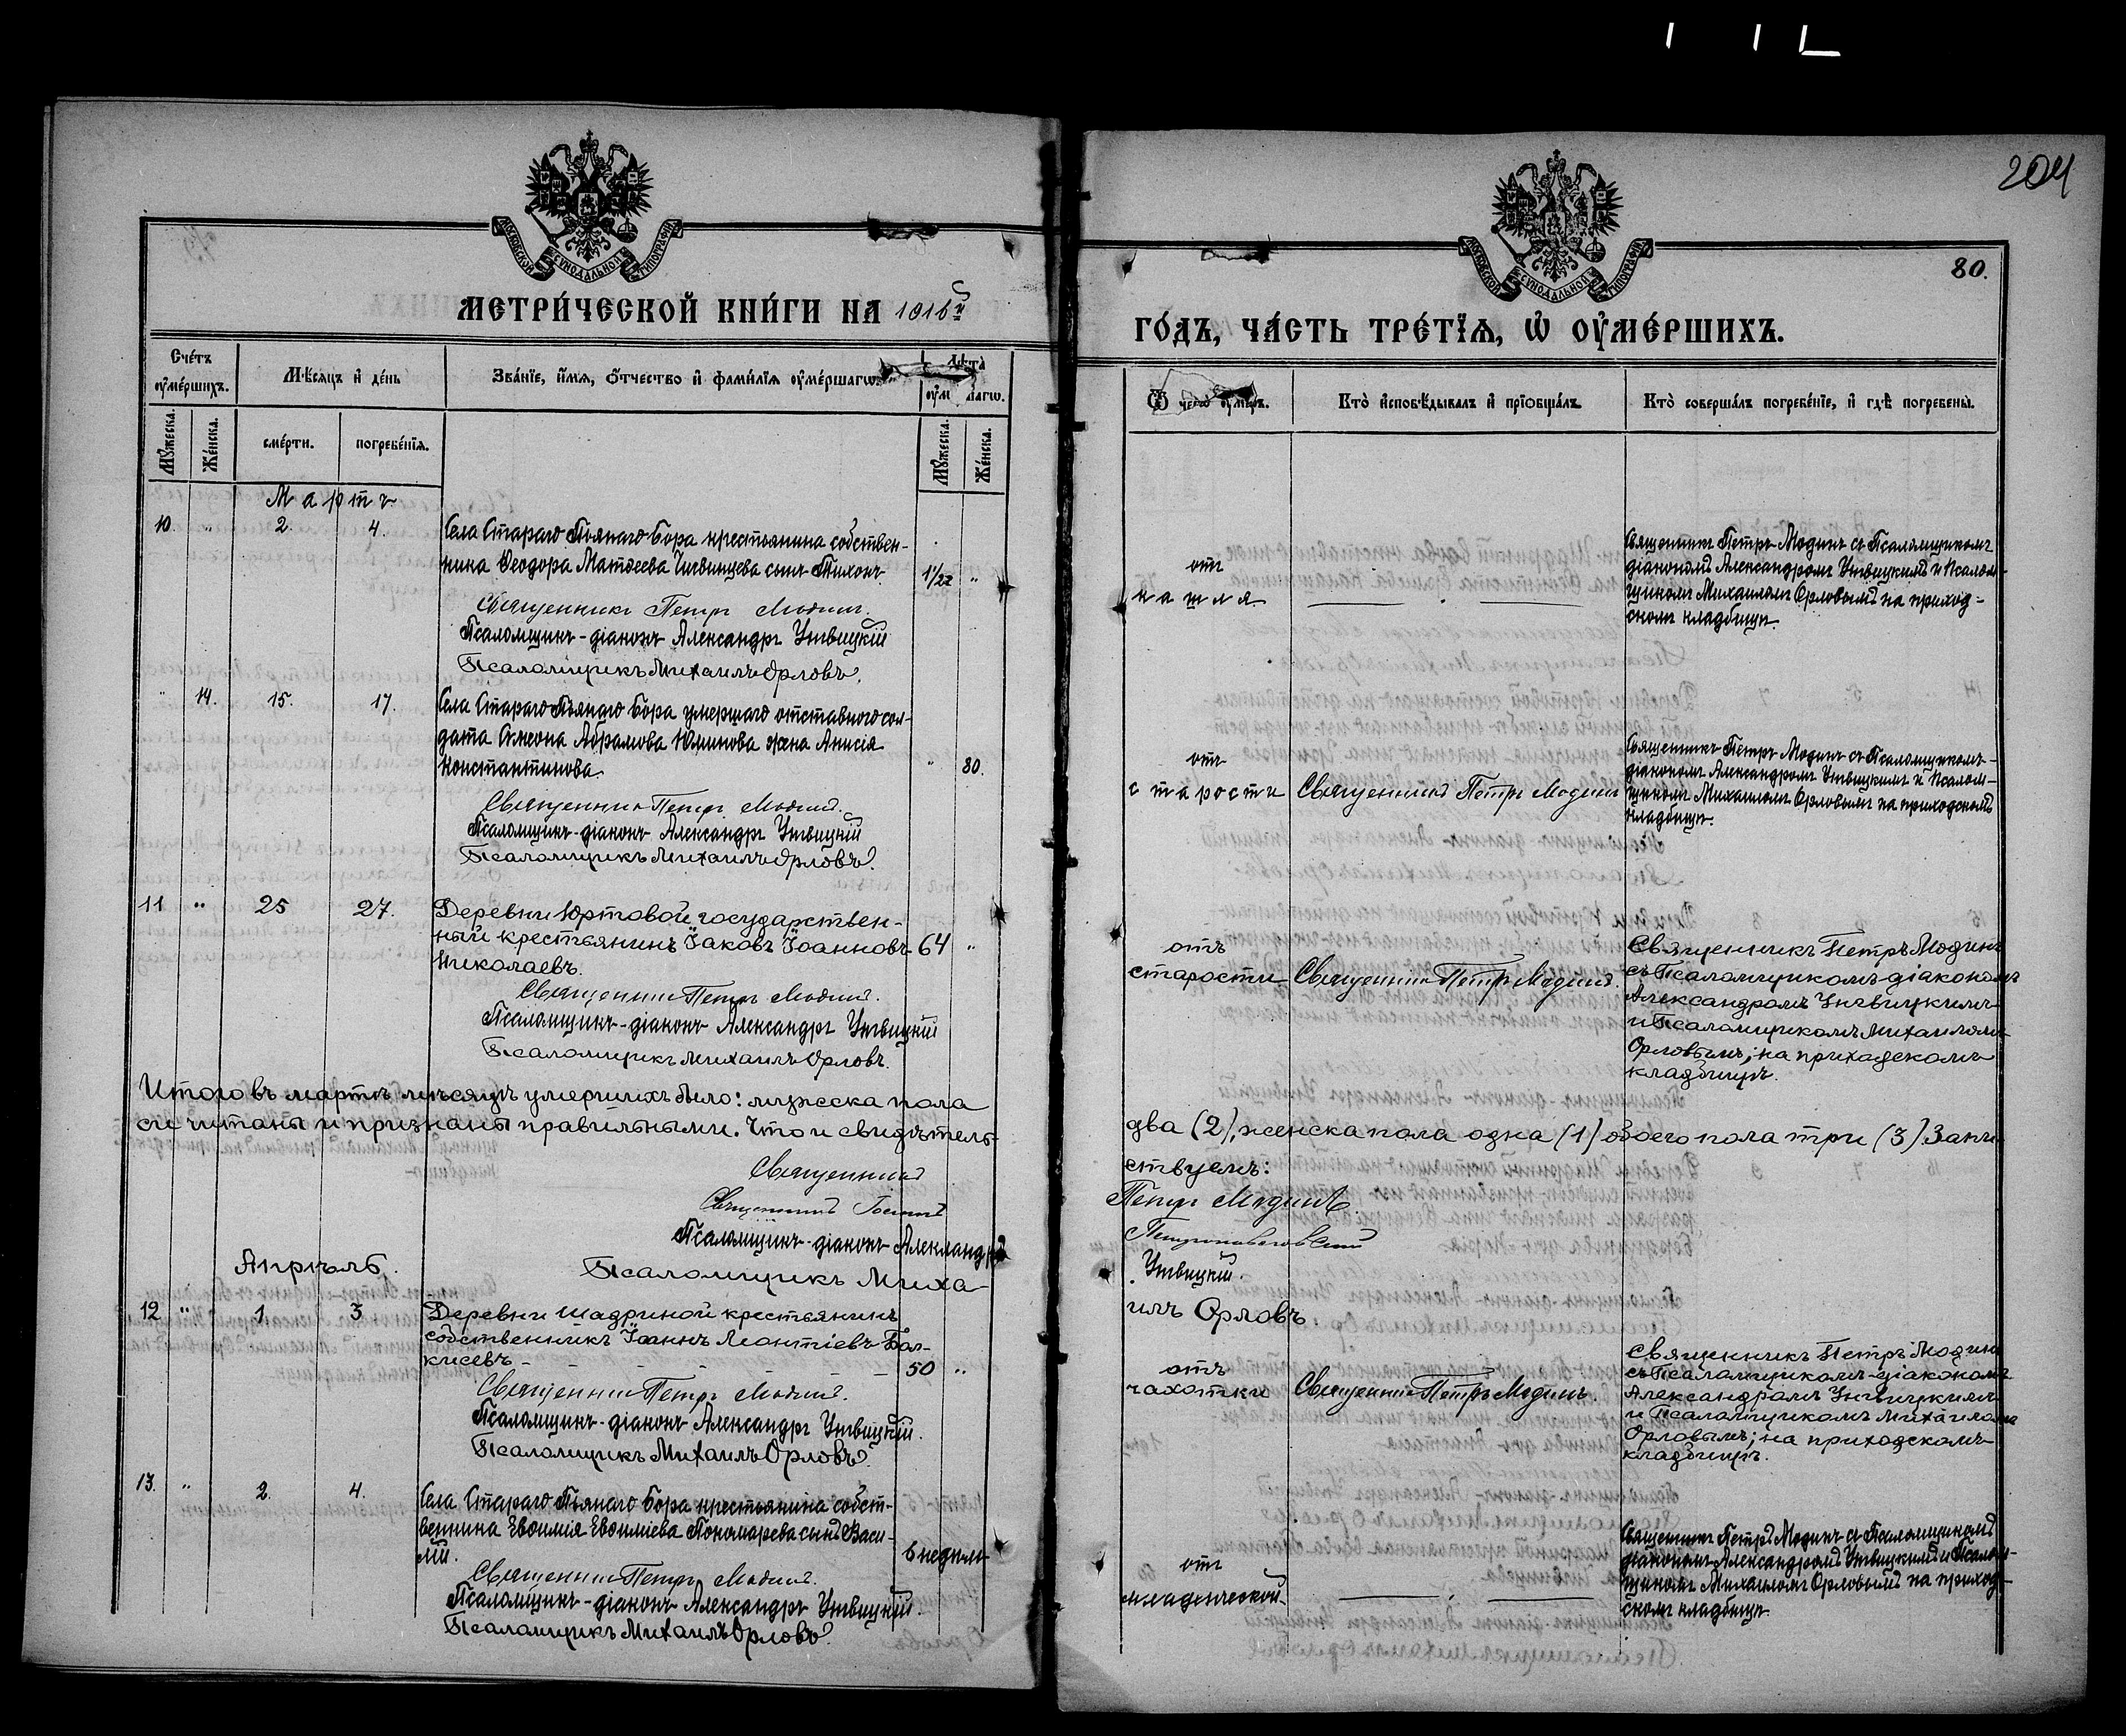 204
80.
МОСКОВСКОЙ СѴНОДАЛЬНОЙ ТИПОГРАФІИ
МОСКОВСКОЙ СѴНОДАЛЬНОЙ ТИПОГРАФІИ
МЕТРИ́ЧЕСКОЙ КНИ́ГИ НА 1916й
ГО́ДЪ, ЧА́СТЬ ТРЕ́ТІЯ, Ѡ҆ ОУ҆МЕ́РШИХЪ.
Сче́тъ оу҆ме́ршихъ.
Мѣ́сяцъ и҆ де́нь
Зва́нїе, и҆́мя, ѻ҆́тчество и҆ фами́лїя оу҆ме́ршагѡ.
Лѣ́та
Ѿ чегѡ̀ оу҆́меръ.
Кто̀ и҆сповѣ́дывалъ и҆ прїѡбща́лъ.
Кто̀ соверша́лъ погребе́нїе, и҆ гдѣ̀ погребены̀.
Мꙋ́жеска.
Же́нска.
сме́рти.
погребе́нїя.
Мꙋ́жеска.
Же́нска.
Мартъ
10. " 2. 4. Села Стараго Пьянаго Бора крестьянина собствен-
ника Ѳеодора Матѳеева Чигвинцева сынъ Тихонъ "
Священникъ Петръ Модинъ.
Псаломщикъ-діаконъ Александръ Унгвицкій
Псаломщикъ Михаилъ Орловъ.
отъ
кашля
Священникъ Петръ Модинъ съ Псаломщикомъ
діакономъ Александромъ Унгвицкимъ и Псалом-
щикомъ Михаиломъ Орловымъ на приход-
скомъ кладбищѣ.
" 14. 15. 17. Села Стараго Пьянаго Бора умершаго отставного сол-
дата Симеона Абрамова Юминова жена Анисія
Константинова. " 80.
Священникъ Петръ Модинъ.
Псаломщикъ-діаконъ Александръ Унгвицкій
Псаломщикъ Михаилъ Орловъ.
отъ
старости
Священникъ Петръ Модинъ
Священникъ Петръ Модинъ съ Псаломщикомъ-
діакономъ Александромъ Унгвицкимъ и Псалом-
щикомъ Михаиломъ Орловымъ на приходскомъ
кладбищѣ.
11 " 25 27. Деревни Юртовой государствен-
ный крестьянинъ Іаковъ Іоанновъ 64 "
Николаевъ.
Священникъ Петръ Модинъ.
Псаломщикъ-діаконъ Александръ Унгвицкій
Псаломщикъ Михаилъ Орловъ.
отъ
старости
Священникъ Петръ Модинъ.
Священникъ Петръ Модинъ
съ Псаломщикомъ-діакономъ
Александромъ Унгвицкимъ
и Псаломщикомъ Михаиломъ
Орловымъ; на приходскомъ
кладбищѣ.
Итого въ мартѣ мѣсяцѣ умершихъ было: мужеска пола
два (2), женска пола одна (1) обоего пола три (3) Запи-
си читаны и признаны правильными. Что и свидѣтель-
ствуемъ:
Священникъ
Петръ Модинъ
Священникъ Іоаннъ
Псаломщикъ-діаконъ Александръ
Унгвицкій.
Псаломщикъ Миха-
илъ Орловъ.
Апрѣль.
12 " 1. 3 Деревни Шадриной крестьянинъ
собственникъ Іоаннъ Леонтіевъ Бал-
кисевъ 50 "
Священникъ Петръ Модинъ.
Псаломщикъ-діаконъ Александръ Унгвицкій.
Псаломщикъ Михаилъ Орловъ.
отъ
чахотки
Священникъ Петръ Модинъ.
Священникъ Петръ Модинъ
съ Псаломщикомъ-діакономъ
Александромъ Унгвицкимъ
и Псаломщикомъ Михаиломъ
Орловымъ; на приходскомъ
кладбищѣ.
13. " 2. 4. Села Стараго Пьянаго Бора крестьянина собст-
венника Евѳимія Евѳиміева Пономарева сынъ Васи-
лій. 6 недѣль
Священникъ Петръ Модинъ.
Псаломщикъ-діаконъ Александръ Унгвицкій.
Псаломщикъ Михаилъ Орловъ.
отъ
младенческой
Священникъ Петръ Модинъ съ Псаломщикомъ
діакономъ Александромъ Унгвицкимъ и Псалом-
щикомъ Михаиломъ Орловымъ на приход-
скомъ кладбищѣ.